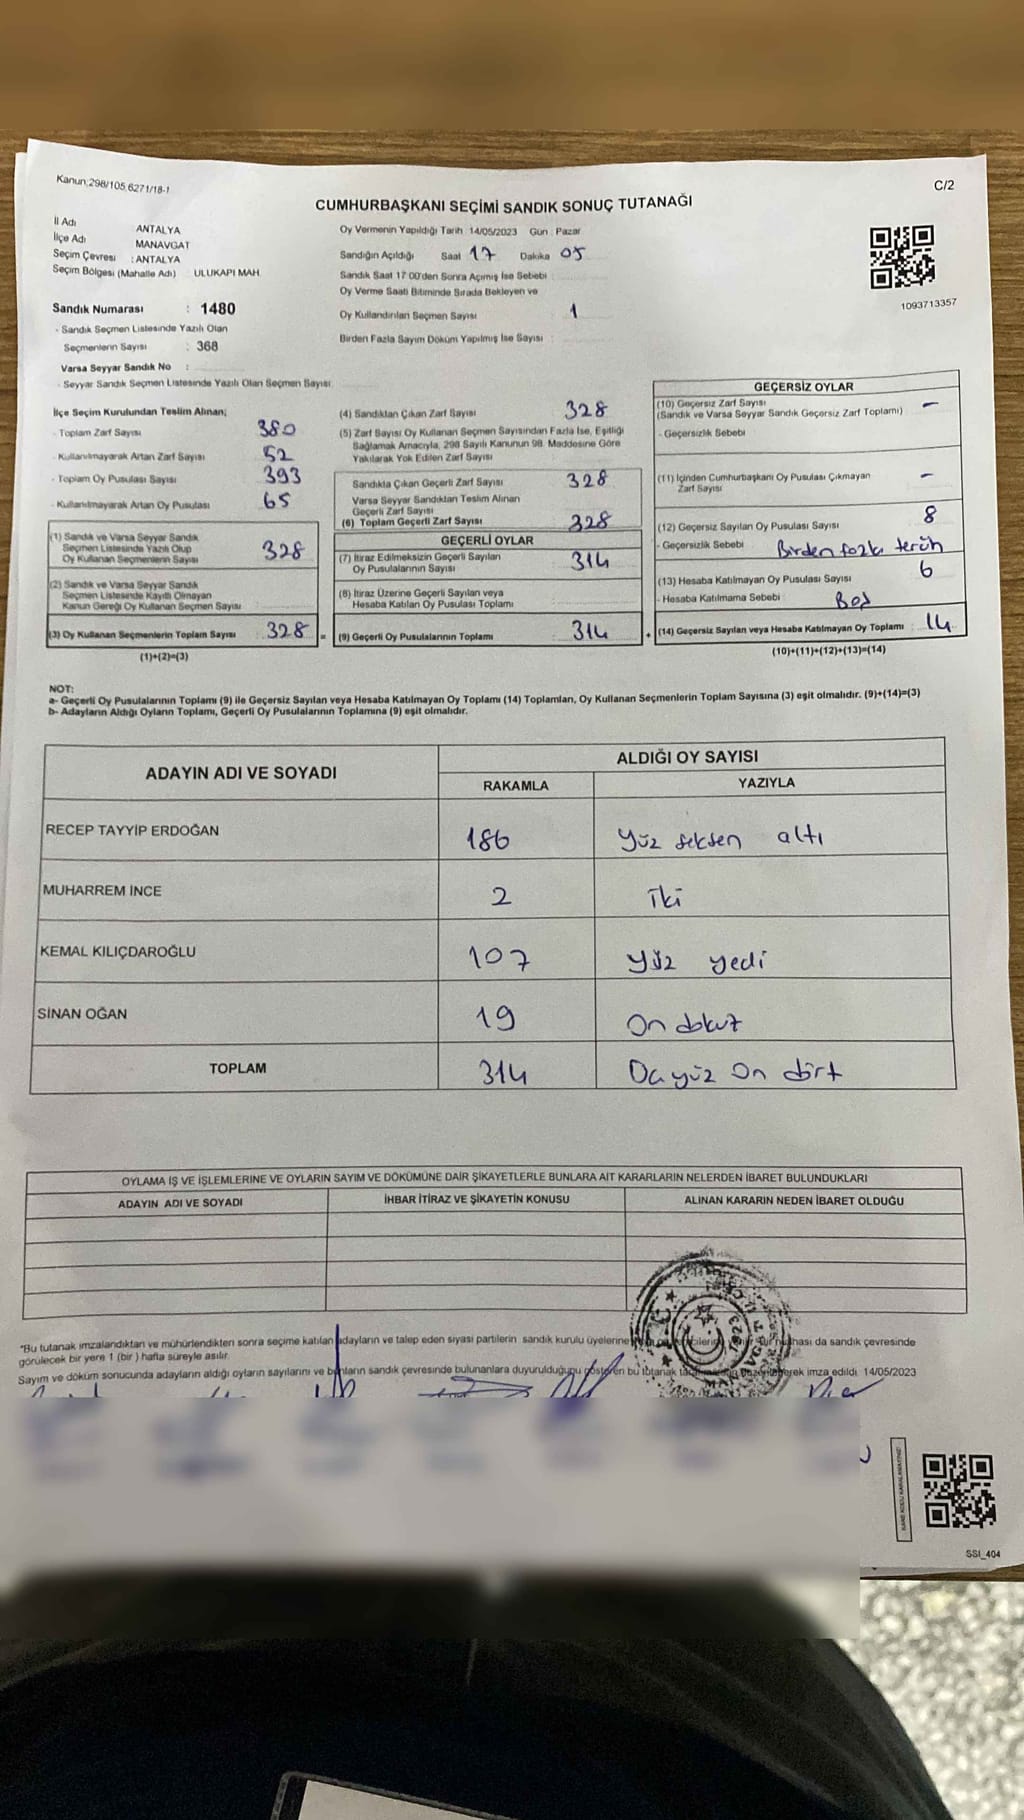 Kanun:298/105,6271/18-1
C/2
CUMHURBAŞKANI SEÇİMİ SANDIK SONUÇ TUTANAĞI
İl Adı ANTALYA
İlçe Adı MANAVGAT
Seçim Çevresi : ANTALYA
Seçim Bölgesi (Mahalle Adı) : ULUKAPI MAH.
Sandık Numarası : 1480
- Sandık Seçmen Listesinde Yazılı Olan
Seçmenlerin Sayısı : 368
Varsa Seyyar Sandık No :
- Seyyar Sandık Seçmen Listesinde Yazılı Olan Seçmen Sayısı:
Oy Vermenin Yapıldığı Tarih :14/05/2023 Gün : Pazar
Sandığın Açıldığı Saat 17 Dakika 05
Sandık Saat 17:00'den Sonra Açımış İse Sebebi :
Oy Verme Saati Bitiminde Sırada Bekleyen ve
Oy Kullandırılan Seçmen Sayısı : 1
Birden Fazla Sayım Döküm Yapılmış İse Sayısı :
1093713357
İlçe Seçim Kurulundan Teslim Alınan;
- Toplam Zarf Sayısı : 380
- Kullanılmayarak Artan Zarf Sayısı : 52
- Toplam Oy Pusulası Sayısı : 393
- Kullanılmayarak Artan Oy Pusulası : 65
(1) Sandık ve Varsa Seyyar Sandık
Seçmen Listesinde Yazılı Olup
Oy Kullanan Seçmenlerin Sayısı : 328
(2) Sandık ve Varsa Seyyar Sandık
Seçmen Listesinde Kayıtlı Olmayan
Kanun Gereği Oy Kullanan Seçmen Sayısı :
(3) Oy Kullanan Seçmenlerin Toplam Sayısı : 328 =
(1)+(2)=(3)
(4) Sandıktan Çıkan Zarf Sayısı : 328
(5) Zarf Sayısı Oy Kullanan Seçmen Sayısından Fazla İse, Eşitliği
Sağlamak Amacıyla, 298 Sayılı Kanunun 98. Maddesine Göre
Yakılarak Yok Edilen Zarf Sayısı :
Sandıkta Çıkan Geçerli Zarf Sayısı : 328
Varsa Seyyar Sandıktan Teslim Alınan
Geçerli Zarf Sayısı :
(6) Toplam Geçerli Zarf Sayısı : 328
GEÇERLİ OYLAR
(7) İtiraz Edilmeksizin Geçerli Sayılan
Oy Pusulalarının Sayısı : 314
(8) İtiraz Üzerine Geçerli Sayılan veya
Hesaba Katılan Oy Pusulası Toplamı :
(9) Geçerli Oy Pusulalarının Toplamı : 314 +
GEÇERSİZ OYLAR
(10) Geçersiz Zarf Sayısı : -
(Sandık ve Varsa Seyyar Sandık Geçersiz Zarf Toplamı)
- Geçersizlik Sebebi
(11) İçinden Cumhurbaşkanı Oy Pusulası Çıkmayan : -
Zarf Sayısı
(12) Geçersiz Sayılan Oy Pusulası Sayısı : 8
- Geçersizlik Sebebi : Birden fazla tercih
(13) Hesaba Katılmayan Oy Pusulası Sayısı : 6
- Hesaba Katılmama Sebebi : Boş
(14) Geçersiz Sayılan veya Hesaba Katılmayan Oy Toplamı : 14
(10)+(11)+(12)+(13)=(14)
NOT:
a- Geçerli Oy Pusulalarının Toplamı (9) ile Geçersiz Sayılan veya Hesaba Katılmayan Oy Toplamı (14) Toplamları, Oy Kullanan Seçmenlerin Toplam Sayısına (3) eşit olmalıdır. (9)+(14)=(3)
b- Adayların Aldığı Oyların Toplamı, Geçerli Oy Pusulalarının Toplamına (9) eşit olmalıdır.
ADAYIN ADI VE SOYADI
ALDIĞI OY SAYISI
RAKAMLA
YAZIYLA
RECEP TAYYİP ERDOĞAN 186 Yüz seksen altı
MUHARREM İNCE 2 iki
KEMAL KILIÇDAROĞLU 107 Yüz yedi
SİNAN OĞAN 19 On dokuz
TOPLAM 314 Üçyüz on dört
OYLAMA İŞ VE İŞLEMLERINE VE OYLARIN SAYIM VE DÖKÜMÜNE DAİR ŞİKAYETLERLE BUNLARA AİT KARARLARIN NELERDEN İBARET BULUNDUKLARI
ADAYIN ADI VE SOYADI
İHBAR İTİRAZ VE ŞİKAYETİN KONUSU
ALINAN KARARIN NEDEN İBARET OLDUĞU
*Bu tutanak imzalandıktan ve mühürlendikten sonra seçime katılan adayların ve talep eden siyasi partilerin sandık kurulu üyelerine da sandık çevresinde
görülecek bir yere 1 (bir ) hafta süreyle asılır.
Sayım ve döküm sonucunda adayların aldığı oyların sayılarını ve bunların sandık çevresinde bulunanlara duyurulduğunu gösteren bu tutanak imza edildi. 14/05/2023
SSI_404